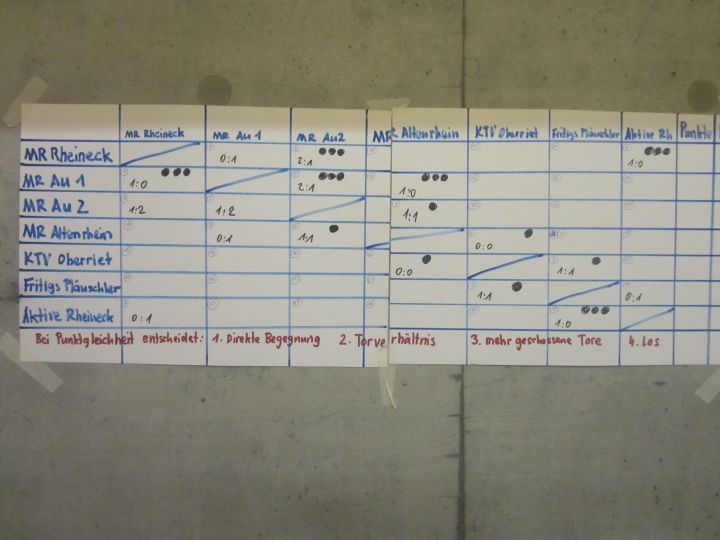 MR Rheineck MR Au 1 MR Au2 MR Altenrhein KTV Oberriet Fritigs Pläuschler Aktive Rh Punkte
MR Rheineck 0:1 2:1 1:0
MR Au 1 1:0 2:1 1:0
MR Au 2 1:2 1:2 1:1
MR Altenrhein 0:1 1:1 0:0
KTV Oberriet 0:0 1:1
Fritigs Pläuschler 1:1 0:1
Aktive Rheineck 0:1 1:0
Bei Punktgleichheit entscheidet: 1. Direkte Begegnung 2. Torverhältnis 3. mehr geschossene Tore 4. Los